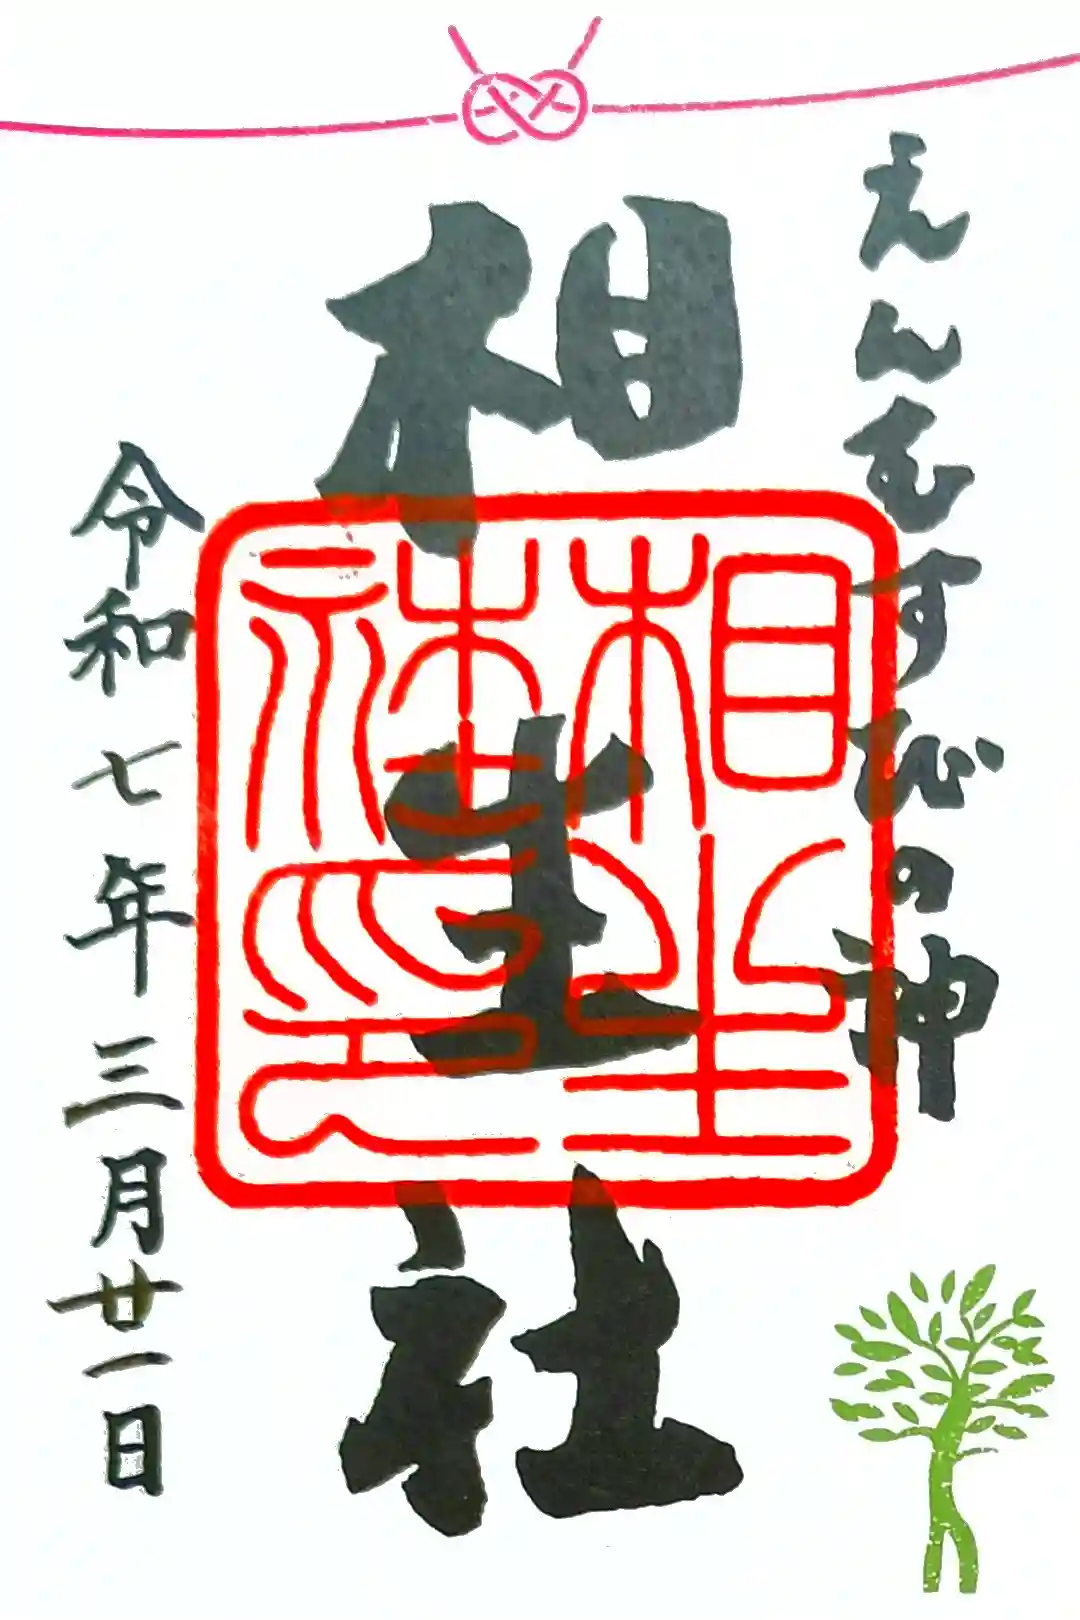 えんむすびの神
相生社
相生社神印
令和七年三月廿一日